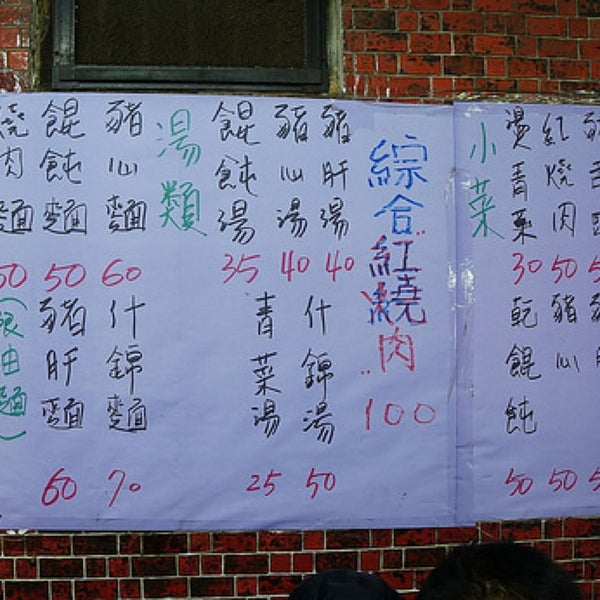 燒肉麵
餛飩麵 50
豬心麵 60
油麵)
豬肝麵 60
什錦麵 70
湯類
餛飩湯 35
豬心湯 40
豬肝湯 40
青菜湯 25
什錦湯 50
綜合:紅燒肉: 100
小菜
燙青菜 30
紅燒肉 50
乾餛飩 50
豬心 50